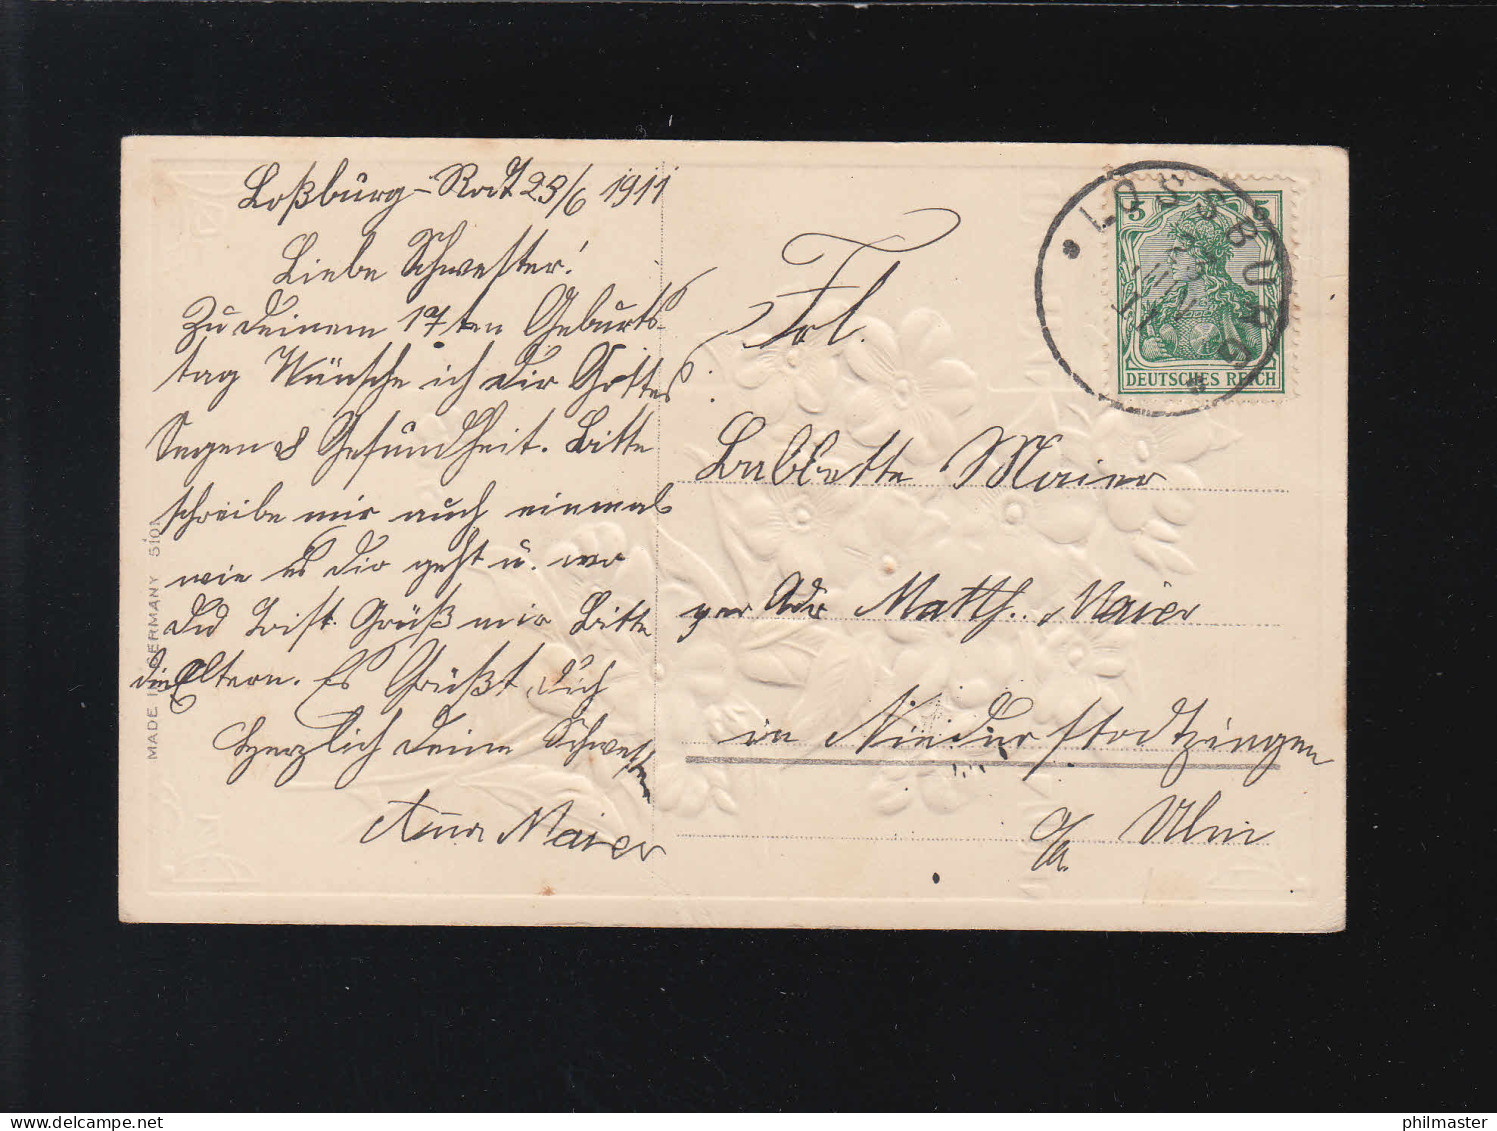 Loßburg-Rodt 23/6 1911
Liebe Schwester!
Zu deinem 17ten Geburts-
tag Wünsche ich dir Gottes
Segen & Gesundheit. Bitte
schreibe mir auch einmal
wie es dir geht u. wo
du bist. Grüß mir Bitte
die Eltern. Es Grüßt dich
Herzlich deine Schwester
Anna Maier
MADE IN GERMANY 5101
Frl.
Babbette Maier
per Adr Matth. Maier
in Niederstotzingen
O/A. Ulm
LOSSBURG
23 JUN 11
5 5
DEUTSCHES REICH
philmaster